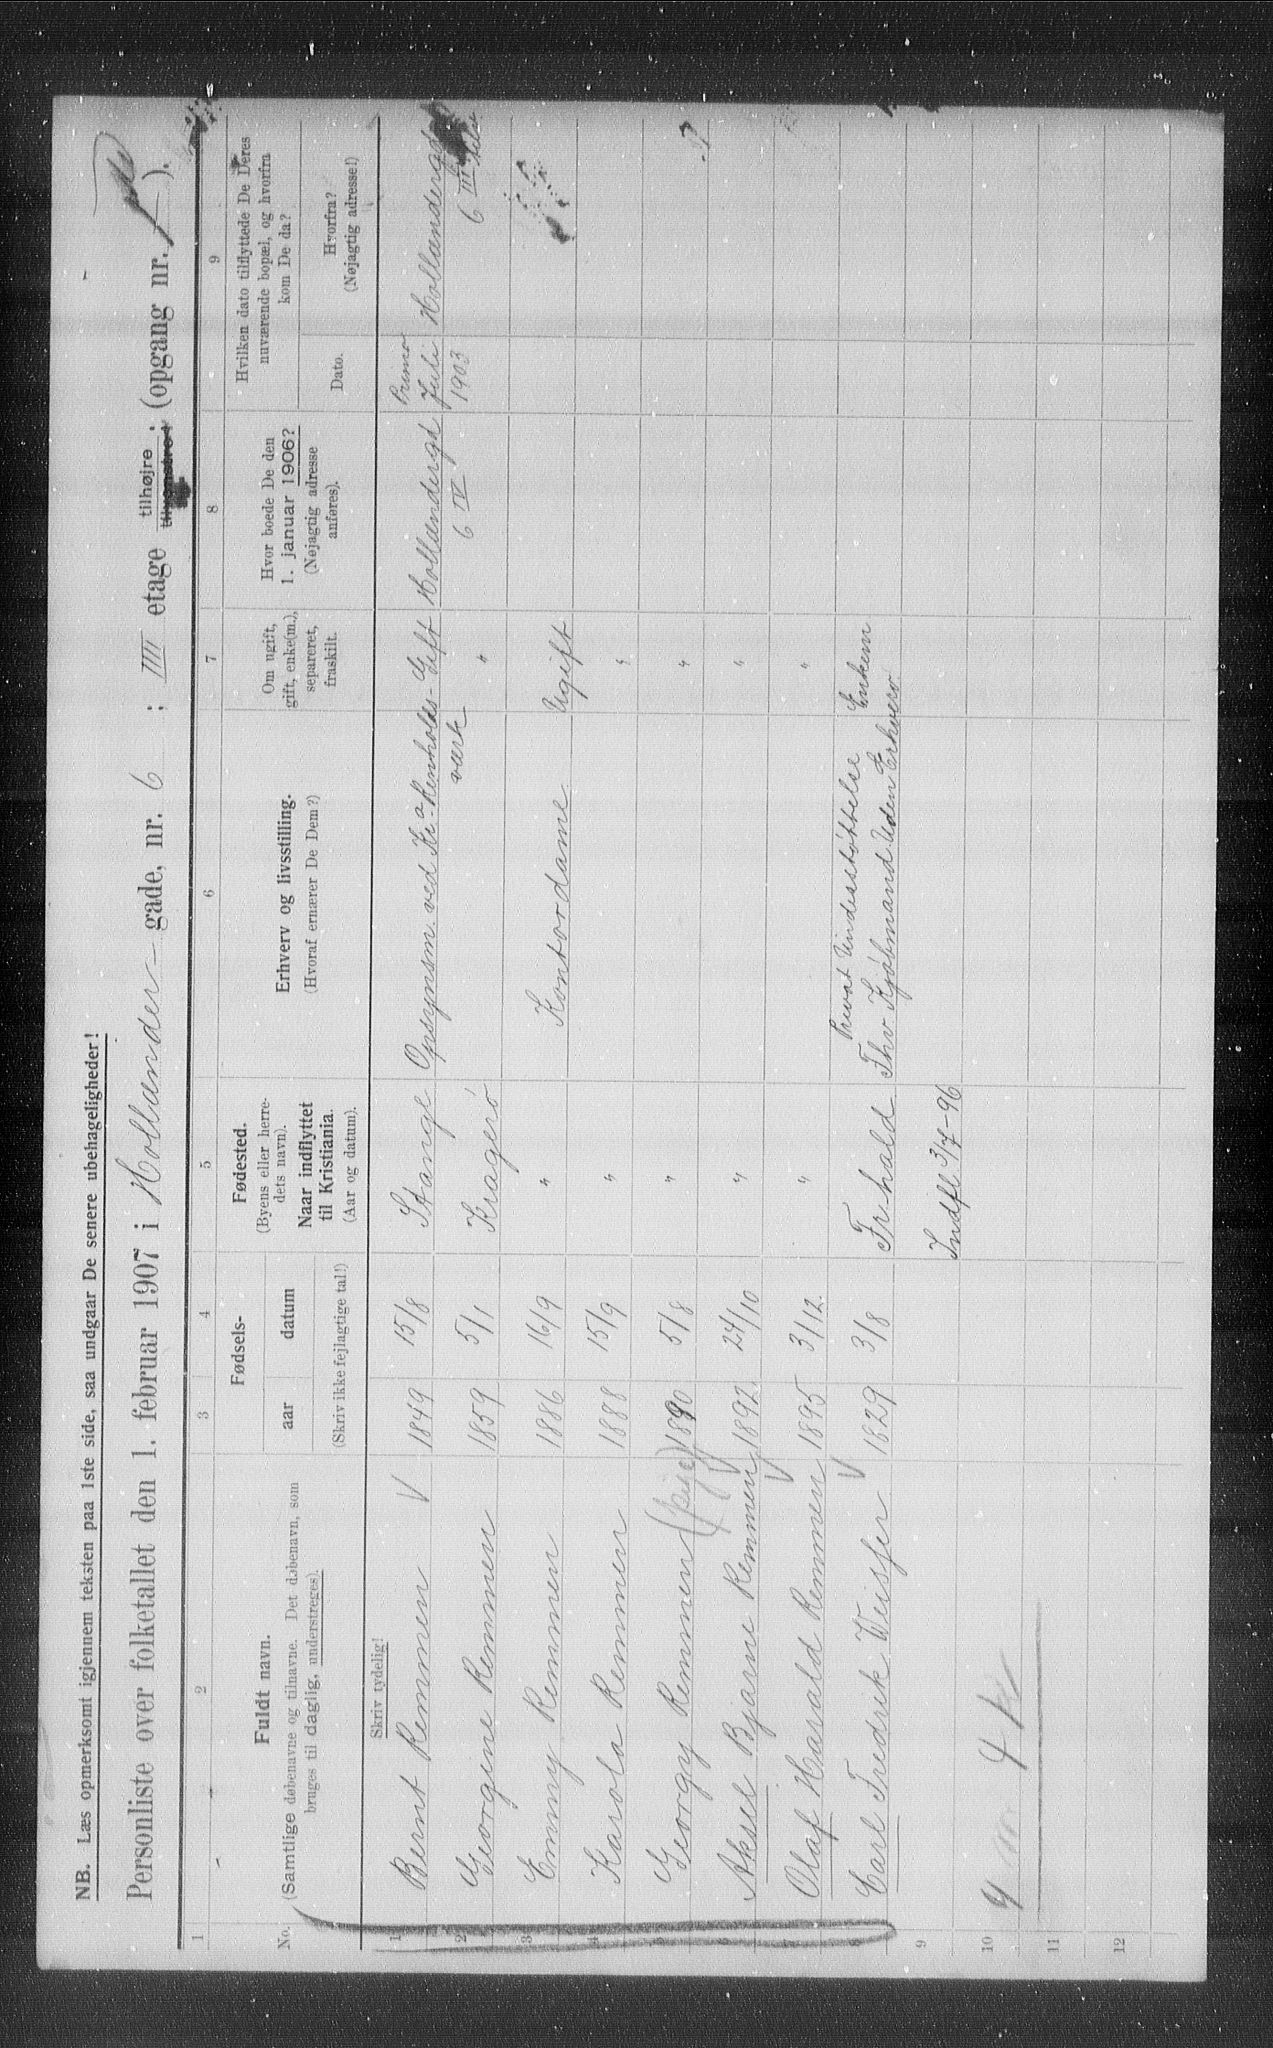 NB. Læs opmerksomt igjennem teksten paa 1ste side, saa undgaar De senere ubehageligheder!
Personliste over folketallet den 1. februar 1907 i Hollænder-gade, nr. 6 ; IIII etage tilhøjre ; tilvenstre ; (opgang nr. ).
1 2 3 4 5 6 7 8 9
No.
Fuldt navn.
(Samtlige døbenavne og tilnavne. Det døbenavn, som
bruges til daglig, understreges).
Fødsels-
aar
datum
(Skriv ikke fejlagtige tal!)
Fødested.
(Byens eller herre-
dets navn).
Naar indflyttet
til Kristiania.
(Aar og datum).
Erhverv og livsstilling.
(Hvoraf ernærer De Dem?)
Om ugift,
gift, enke(m.),
separeret,
fraskilt.
Hvor boede De den
1. januar 1906?
(Nøjagtig adresse
anføres).
Hvilken dato tilflyttede De Deres
nuværende bopæl, og hvorfra
kom De da?
Dato.
Hvorfra?
(Nøjagtig adresse!)
Skriv tydelig!
1 Bernt Remmen 1849 15/8 Stange Opsynsm. ved Kr.a Renholds- værk Gift Hollændergd 6 IV Primo Juli 1903 Hollændergd 6 III
2 Georgine Remmen 1859 5/1 Kragerö "
3 Emmy Remmen 1886 16/9 " Kontordame Ugift
4 Karola Remmen 1888 15/9 " "
5 Georgy Remmen (pige) 1890 5/8 " "
6 Aksel Bjarne Remmen 1892 24/10 " "
7 Olaf Harald Remmen 1895 3/12. " "
8 Carl Fredrik Weisser 1829 3/8 Frhald Privat Understöttelse Fhv Kjöbmand Uden Erhverv Enkem
9 Indfl 3/7-96
10
11
12